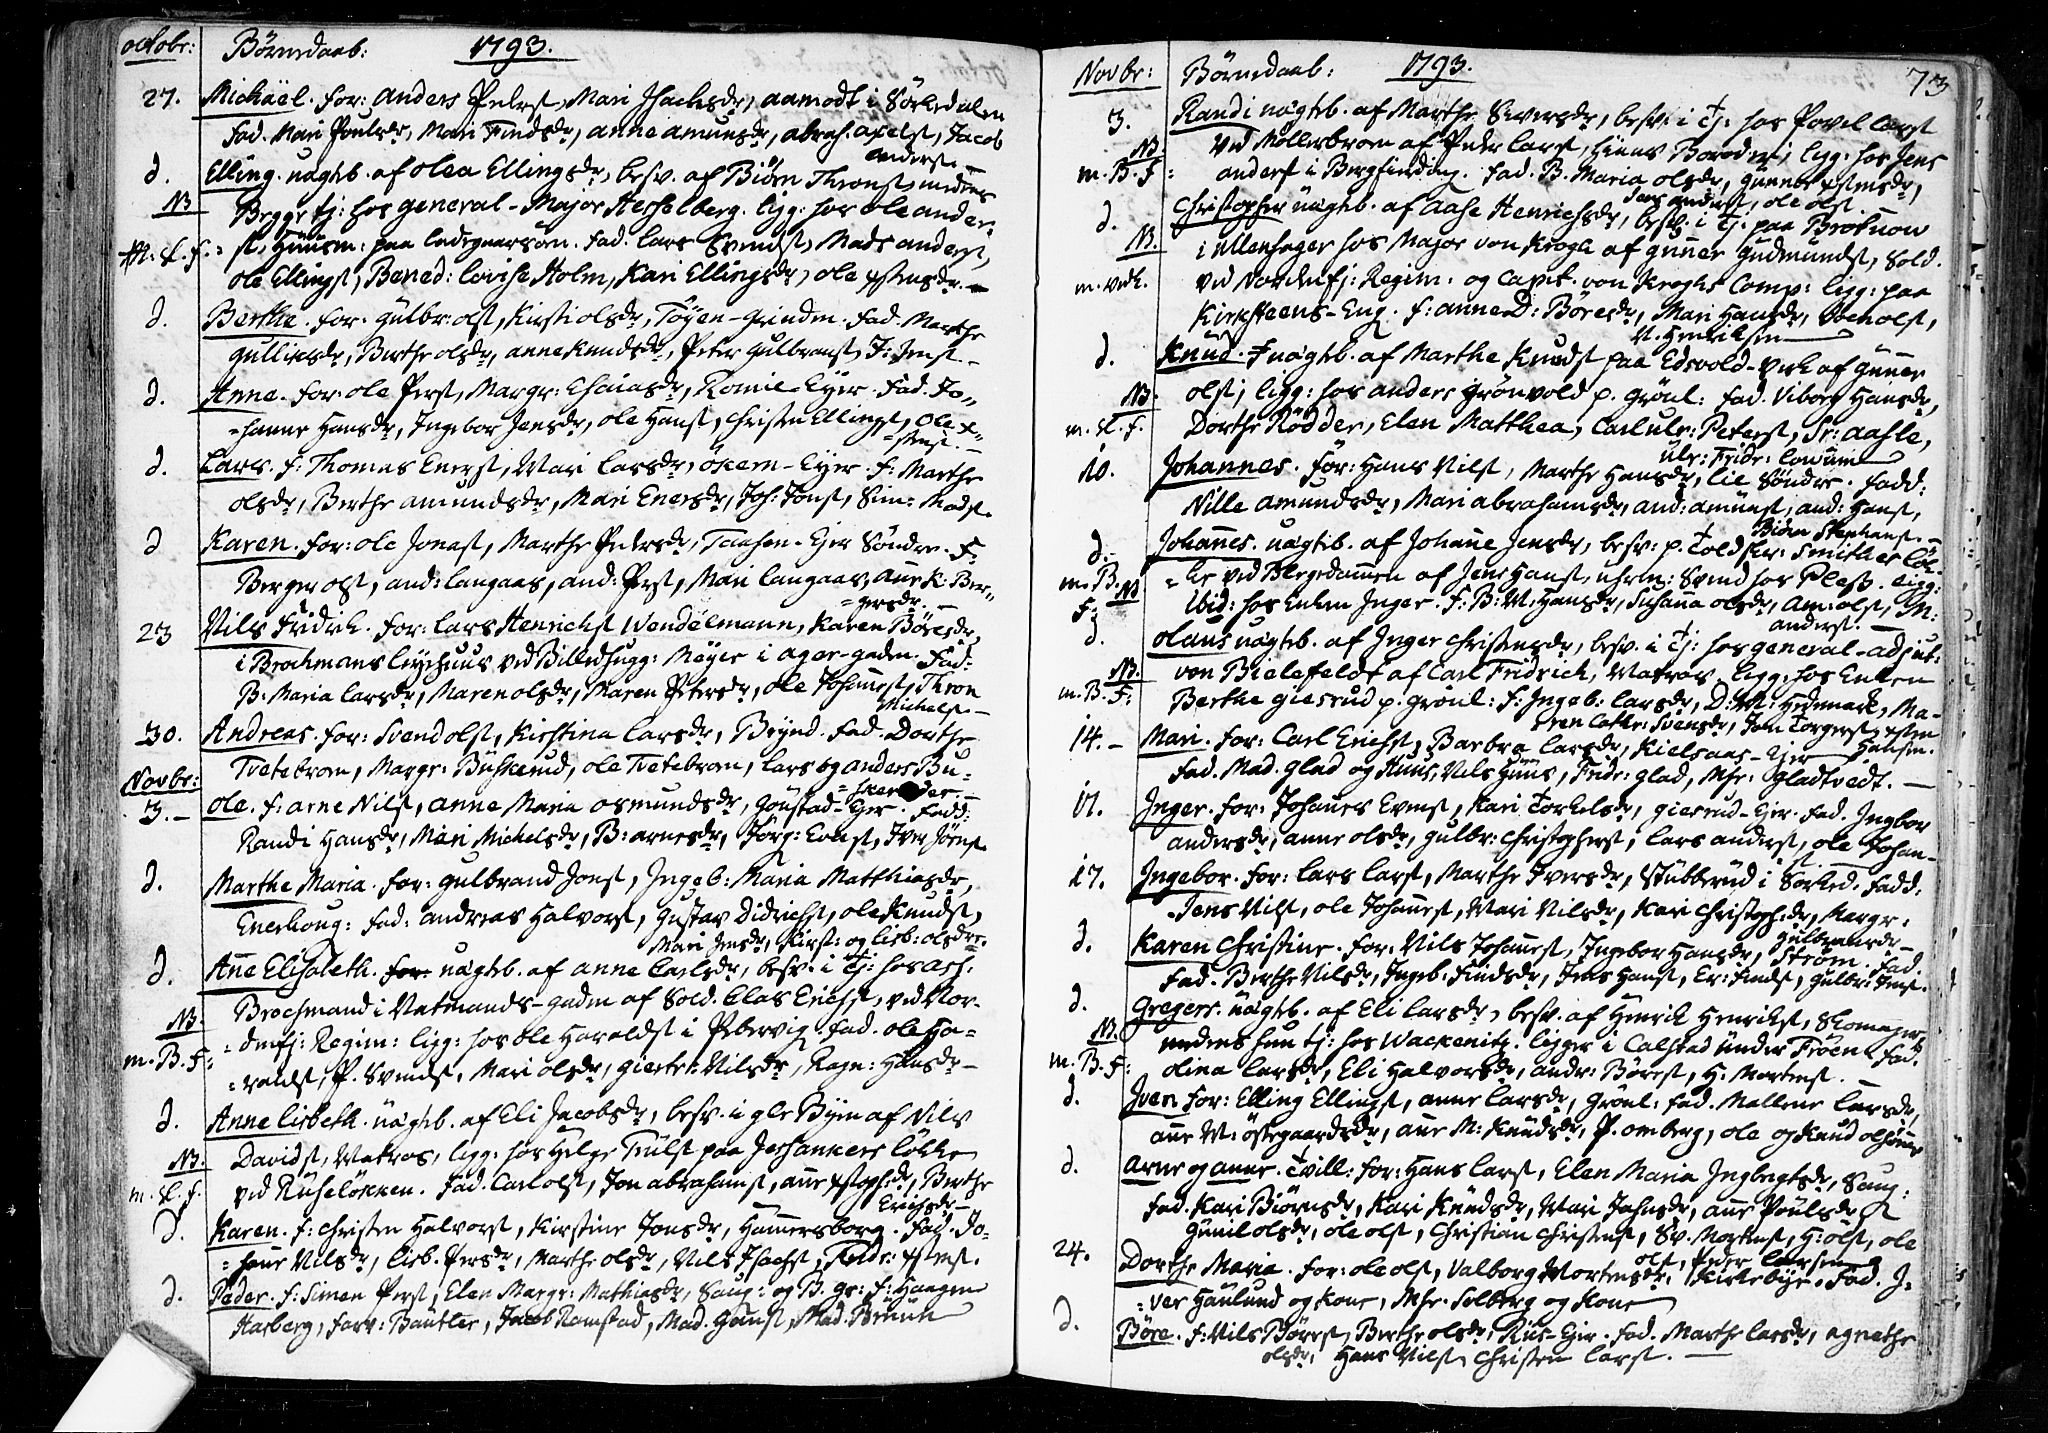 octobr: Börnedaab: 1793.
27. Michäel. for: Anders Pederst, Mari Isachsdr, Aamodt i Sörkedalen
fad. Mari Poulsdr, Mari Findsdr, Anne Amundsdr, Abrah. Axelst, Jacob
Anderst. —
d. Elling. uægteb. af Olea Ellingsdr, besv. af Biörn Thronst, medens
NB Begge tj: hos General-Major Hesselberg. ligg: hos Ole Ander-
m. S. F. = st, Huusm: paa Ladegaarsöen. fad. Lars Svendst, Mads Anderst,
Ole Ellingst, Bened: Lovise Holm, Kari Ellingsdr, Ole
d. Berthe. for: Gulbr: olst, Kirsti olsdr, Töyen-Grindm. fad. Marthe
Gulliksdr, Berthe olsdr, Anne Knudsdr, Peter Gulbranst, J: Jenst —
d. Anne. for: Ole Perst, Margr: Esaiasdr, Romie Eyer. fad. Jo-
=hanne Hansdr, Ingebor Jensdr, Ole Hanst, Christen Ellingst, Ole
d. Lars. f: Thomas Enerst, Mari Larsdr, Ökern-Eyer. f: Marthe
olsdr, Berthe Amundsdr, Mari Enersdr, Joh: Jonst, Sim: Madst.
d Karen. for: Ole Jonast, Marthe Pedersdr, Taasen-Eyer Söndre. F.
Berger olst, And: Langaas, And: Perst, Mari Langaas, Ane K: Ber-
=gersdr. —
23 Nils Fridrik. for: Lars Henrichst Wendelmann, Karen Böresdr,
i Brochmans Leyehuus ved Billedhugg: Meyer i Ager-gaden. Fad:
B: Maria Larsdr, Maren olsdr, Maren Petersdr, Ole Johanest, Thron
Michelst —
30. Andreas. for: Svend olst, Kirstina Larsdr, Brynd. Fad. Dorthe
Tvetebraaten, Margr: Buskerud, Ole Tvetebraaten, Lars og Anders Bu-
Novbr: =skeruder. —
3. — Ole. f: Arne Nilst, Anne Maria Osmundsdr, Gaustad-Eyer. Fadd:
Randi Hansdr, Mari Michelsdr, B: Arnesdr, Jörg: Evenst, Iver Jörgst.
d. Marthe Maria. for: Gulbrand Jonst, Ingeb: Maria Matthiasdr,
Enerhoug: fad: Andreas Halvorst, Gustav Didrichst, Ole Knudst,
Mari Jensdr, Kirst: og Lisb: olsdre.
d. Ane Elisabeth. uægteb. af Anne Carlsdr, besv. i tj: hos Ass.
Brochmand i Vatmands-gaden af Sold. Clas Erichst, ved Nor-
NB. =denfj: Regim: ligg: hos Ole Haraldst i Pebervig. fad. Ole Ha-
m. B. F: =raldst, P. Svendst, Mari olsdr, Giertr: Nilsdr, Ragn: Hansdr —
d. Anne Lisbeth. uægteb. af Eli Jacobsdr, besv. i gle Byen af Nils
NB. Davidst, Matros, ligg: hos Helge Trulst paa Jerhankers Lökke
m. S. F. ved Ruselökken. fad. Carl olst, Jon Abrahamst, Berthe
Erichsdr —
d. Karen. f: Christen Halvorst, Kirstine Jonsdr, Hammersborg. fad. Jo-
=hane Nilsdr, Lisb. Persdr, Marthe olsdr, Nils Isachst, Fridr:
d. Peder. f: Simen Perst, Elen Margr: Mathiasdr, Haagen
Harberg, Farv: Bautler, Jacob Ramstad, Mad. Gunst, Mad. Bruun
Novbr: Börnedaab: 1793. 73
3. Randi uægteb. af Marthe Siversdr, besv: i tj: hos Povel Larst
NB. ved Möllerbroen af Peder Larst, hiens Broder; ligg: hos Jens
m. B. F: Anderst i Bergfierding. fad. B. Maria olsdr,
Jens Anderst, Ole olst
d. Christopher uægteb. af Aase Henrichsdr, besv. i tj: paa
NB. i Ullensager hos Major von Krogh af Guner Gudmundst, Sold.
m. vedk. ved Nordenfj: Regim: og Capit. von Kroghs Comp: ligg: paa
Kirksteens-Eng. f: Anne D: Böresdr, Mari Hansdr, olst,
N. Henriksen
d. Knud. uægteb. af Marthe Knudst paa Edsvold-Verk af Guner
NB. olst, ligg: hos Anders Grönvold p. Grönl: fad. Viborg Hansdr,
m. S. F. Dorthe Rödder, Elen Matthea, Carl Ulr: Peterst, Sr: Aasle,
Ulr: Fridr:
10. Johannes. for: Hans Nilst, Marthe Hansdr, Lie Söndre. fadd:
Nille Amundsdr, Mari Abrahamsdr, And: Amunst, And: Hanst,
Biörn Stephanst —
d. Johanes. uægteb. af Johane Jensdr, besv: p. Told Skr: Smithes Lök-
m. B. NB =ke ved Blegedammen af Jens Hanst, Svend hos Pless. ligg:
F: Ibid: hos Enken Inger. f: B: M: Hansdr, Susanna olsdr, Am: olst, M:
anderst. —
d. Olaus uægteb. af Inger Christensdr, besv. i tj: hos General-adjut:
NB. von Bielefeldt af Carl Fridrich, Matros. ligg: hos Enken
m. B. F: Berthe Giesrud p. Grönl: f: Ingeb: Larsdr, D: M: Hedemark, Ma-
ren Cathr: Svensdr, Jon Torgerst,
14. — Mari. for: Carl Erichst, Barbra Larsdr, Kielsaas-Eyer Hansen.
fad. Mad. Glad og Huus, Nils Huus, Fridr: Glad, Msr: Gladtvedt. —
17. Inger. for: Johanes Evenst, Kari Torkelsdr, Giesrud-Eyer. fad. Ingbor
Andersdr, Anne olsdr, Gulbr: Christopherst, Lars Anderst, Ole Johan-
st. —
17. Ingebor. for: Lars Larst, Marthe Iversdr, Stubberud i Sorked. fadd:
Jens Nilst, Ole Johanest, Mari Nilsdr, Kari Christoph:dr, Margr:
Gulbransdr —
d. Karen Christine. for: Nils Johanest, Ingebor Hansdr, Ström. Fad.
fad. Berthe Nilsdr, Ingeb: Findsdr, Jens Hanst, Er: Findst, Gulbr: Jenst.
d. Gregers. uægteb. af Eli Larsdr, besv. af Henrik Henrikst, Skomager,
NB. medens hun tj: hos Wackenitz. ligger i Calstad under Fröen. Fad.
m. B. F: Olina Larsdr, Eli Halvorsdr, Andr: Börest, H: Mortenst. —
d. Iver. for: Elling Ellingst, Anne Larsdr, Grönl: fad. Mallene Larsdr,
Ane M: Östegaardsdr, Ane M: Knudsdr, P. Omberg, Ole og Knud
d. Arne og Anne. Tvill: for: Hans Larst, Elen Maria Ingbrigtsdr, Saug:
fad. Kari Biörnsdr, Kari Knudsdr, Mari Johnsdr, Ane Poulsdr
Gunil olsdr, Ole olst, Christian Christenst, Sv. Mortenst, H: olst, Ole
olst, Peder Larsen
24. Dorthe Maria. for: Ole olst, Valborg Mortensdr, Kirkebye. Fad. I-
=ver Haulund og Kone, Msr. Solberg og Kone
d. Böre. f: Nils Börest, Berthe olsdr, Riis-Eyer. fad. Marthe Larsdr, Agnethe
olsdr, Hans Nilst, Christen Larst. —